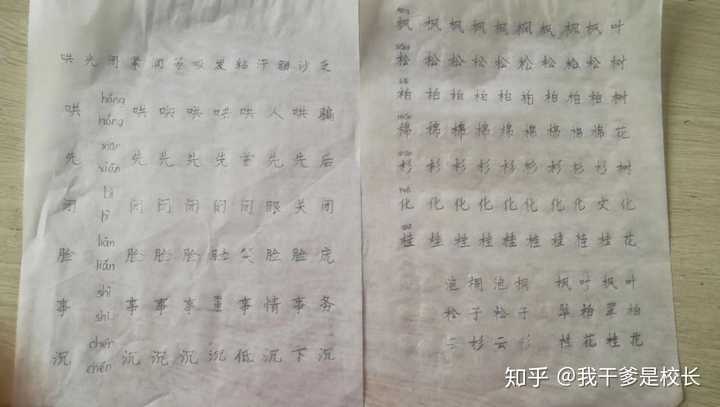 哄 hǒng hǒng 哄 哄 哄 哄 哄 人 哄 骗
先 xiān xiān 先 先 先 先 先 先 后
闭 bì bì 闭 闭 闭 闭 闭 眼 关 闭
脸 liǎn liǎn 脸 脸 脸 脸 笑 脸 脸 庞
事 shì shì 事 事 事 事 事 情 事 务
沉 chén chén 沉 沉 沉 沉 低 沉 下 沉
枫 枫 枫 枫 枫 枫 枫 枫 枫 叶
松 松 松 松 松 松 松 松 松 树
柏 柏 柏 柏 柏 柏 柏 柏 柏 树
棉 棉 棉 棉 棉 棉 棉 棉 棉 花
杉 杉 杉 杉 杉 杉 杉 杉 杉 树
化 化 化 化 化 化 化 化 文 化
桂 桂 桂 桂 桂 桂 桂 桂 桂 花
泡 桐 泡 桐 枫 叶 枫 叶
松 子 松 子 翠 柏 翠 柏
云 杉 云 杉 桂 花 桂 花
知乎 @我干爹是校长